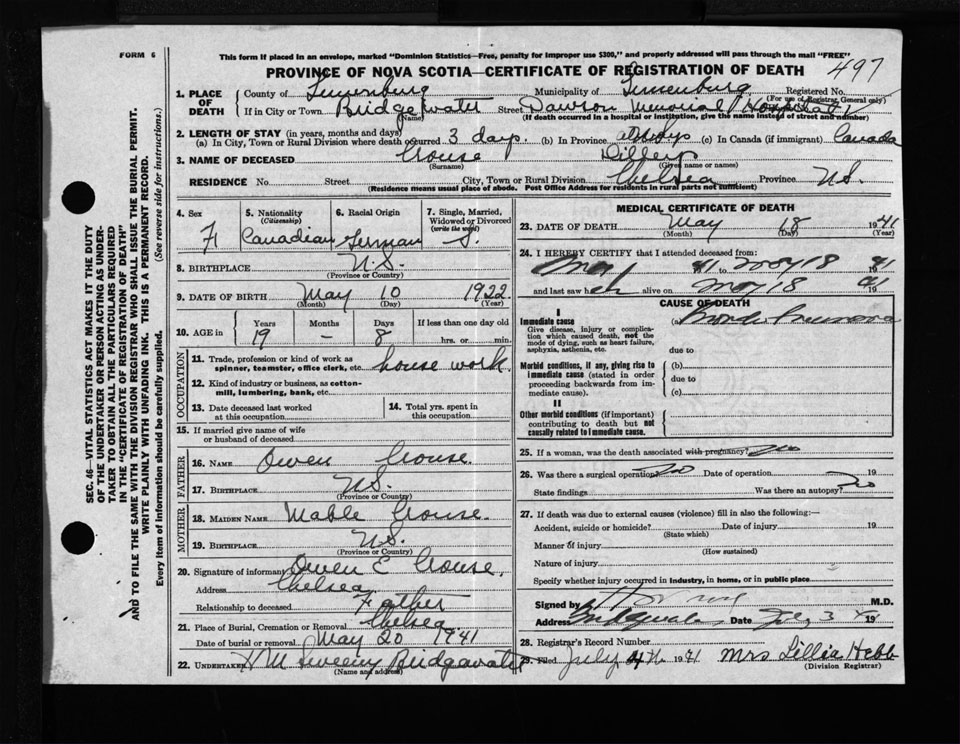 FORM 6
This form if placed in an envelope, marked "Dominion Statistics—Free, penalty for improper use $300," and properly addressed will pass through the mail "FREE"
PROVINCE OF NOVA SCOTIA—CERTIFICATE OF REGISTRATION OF DEATH 497
1. PLACE OF DEATH County of Lunenburg Municipality of Lunenburg Registered No. (For use of Registrar General only)
If in City or Town Bridgewater (Name) Street Dawson Memorial Hospital
(If death occurred in a hospital or institution, give the name instead of street and number)
2. LENGTH OF STAY (in years, months and days)
(a) In City, Town or Rural Division where death occurred 3 days. (b) In Province (c) In Canada (if immigrant) Canada
3. NAME OF DECEASED Crouse (Surname) (Given name or names)
RESIDENCE No. Street City, Town or Rural Division Chelsea Province N.S.
(Residence means usual place of abode. Post Office Address for residents in rural parts not sufficient)
4. Sex F
5. Nationality (Citizenship) Canadian
6. Racial Origin German
7. Single, Married, Widowed or Divorced (write the word) S.
8. BIRTHPLACE N.S. (Province or Country)
9. DATE OF BIRTH May (Month) 10 (Day) 1922 (Year)
10. AGE in Years 19 Months – Days 8 If less than one day old hrs. or min.
OCCUPATION
11. Trade, profession or kind of work as spinner, teamster, office clerk, etc. house work.
12. Kind of industry or business, as cotton-mill, lumbering, bank, etc.
13. Date deceased last worked at this occupation
14. Total yrs. spent in this occupation
15. If married give name of wife or husband of deceased
FATHER
16. NAME Owen Crouse.
17. BIRTHPLACE N.S. (Province or Country)
MOTHER
18. MAIDEN NAME Mable Crouse.
19. BIRTHPLACE N.S. (Province or Country)
20. Signature of informant Owen E Crouse.
Address Chelsea
Relationship to deceased Father
21. Place of Burial, Cremation or Removal Chelsea
Date of burial or removal May 20 1941
22. UNDERTAKER Sweeny Bridgewater (Name and address)
MEDICAL CERTIFICATE OF DEATH
23. DATE OF DEATH May (Month) 18 (Day) 1941 (Year)
24. I HEREBY CERTIFY that I attended deceased from:
41 to May 18 1941
and last saw her alive on May 18 1941
CAUSE OF DEATH
I
Immediate cause
Give disease, injury or complication which caused death, not the mode of dying, such as heart failure, asphyxia, asthenia, etc.
(a)
due to
Morbid conditions, if any, giving rise to immediate cause (stated in order proceeding backwards from immediate cause).
(b)
due to
(c)
II
Other morbid conditions (if important) contributing to death but not causally related to immediate cause.
25. If a woman, was the death associated with pregnancy? No
26. Was there a surgical operation? No Date of operation 19
State findings Was there an autopsy? No
27. If death was due to external causes (violence) fill in also the following:—
Accident, suicide or homicide? (State which) Date of injury 19
Manner of injury (How sustained)
Nature of injury
Specify whether injury occurred in industry, in home, or in public place
Signed by M.D.
Address Date July 3 19
28. Registrar's Record Number
29. Filed July 4th 1941 Mrs Lillia Hebb (Division Registrar)
SEC. 46—VITAL STATISTICS ACT MAKES IT THE DUTY
OF THE UNDERTAKER OR PERSON ACTING AS UNDER-
TAKER TO OBTAIN ALL THE PARTICULARS REQUIRED
IN THE "CERTIFICATE OF REGISTRATION OF DEATH"
AND TO FILE THE SAME WITH THE DIVISION REGISTRAR WHO SHALL ISSUE THE BURIAL PERMIT.
WRITE PLAINLY WITH UNFADING INK. THIS IS A PERMANENT RECORD.
Every item of information should be carefully supplied. (See reverse side for instructions.)